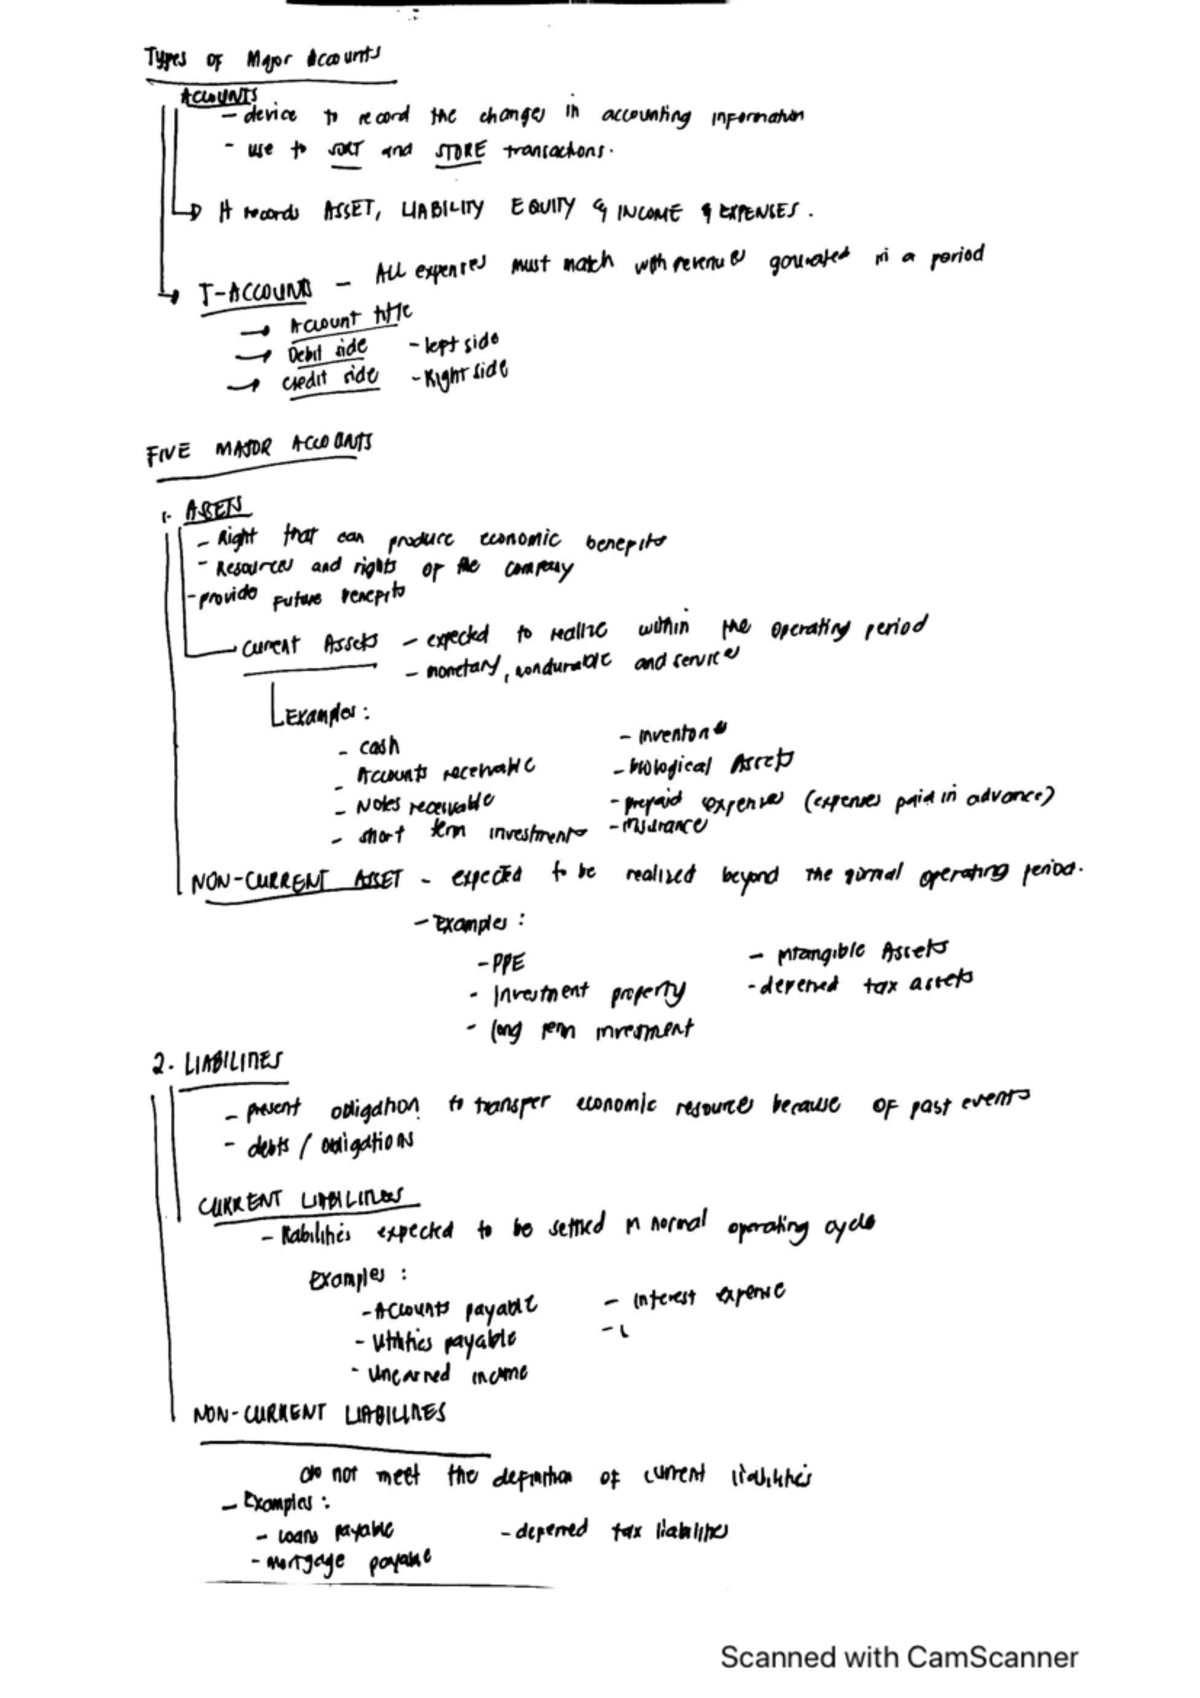 Types of Major Accounts
ACCOUNTS
- device to record the changes in accounting information
- use to SORT and STORE transactions.
It records ASSET, LIABILITY EQUITY & INCOME & EXPENSES.
T-ACCOUNTS - ALL expenses must match with revenues generated in a period
Account title
Debit side - left side
Credit side - Right side
FIVE MAJOR ACCOUNTS
1. ASSETS
- Right that can produce economic benefits
- Resources and rights of the company
- provide future benefits
Current Assets - expected to realize within the operating period
- monetary, nondurable and services
Examples:
- cash - inventories
- Accounts receivable - biological Assets
- Notes receivable - prepaid expenses (expenses paid in advance)
- short term investments - insurance
NON-CURRENT ASSET - expected to be realized beyond the normal operating period.
- Examples:
- PPE - intangible Assets
- Investment property - deferred tax assets
- long term investment
2. LIABILITIES
- present obligation to transfer economic resources because of past events
- debts / obligations
CURRENT LIABILITIES
- liabilities expected to be settled in normal operating cycle
Examples:
- Accounts payable - interest expense
- Utilities payable -
- Unearned income
NON-CURRENT LIABILITIES
do not meet the definition of current liabilities
- Examples:
- Loans payable - deferred tax liabilities
- mortgage payable
Scanned with CamScanner